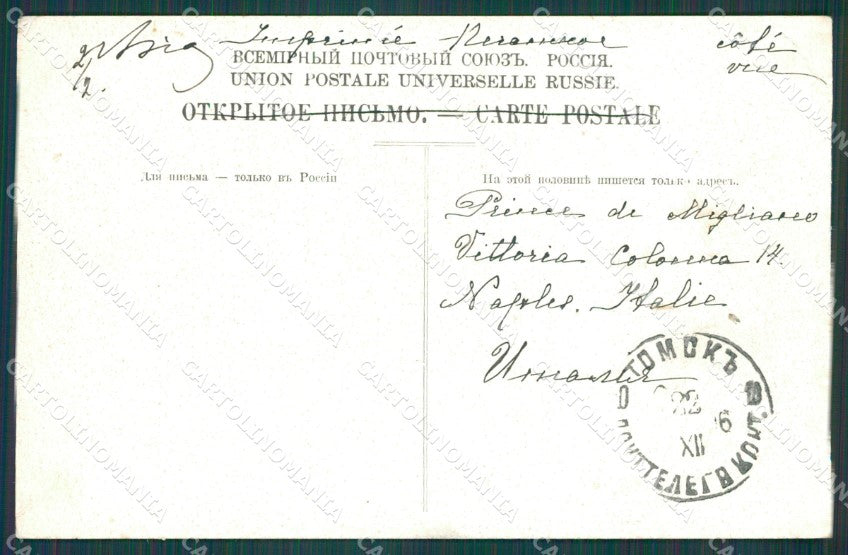 Imprimé
côté
vue
ВСЕМІРНЫЙ ПОЧТОВЫЙ СОЮЗЪ. РОССІЯ.
UNION POSTALE UNIVERSELLE RUSSIE.
ОТКРЫТОЕ ПИСЬМО. — CARTE POSTALE
Для письма — только въ Россіи
На этой половинѣ пишется только адресъ.
Prince de Migliano
Vittoria Colonna 14.
Naples. Italie
Италія
ТОМСКЪ
22
XII
6
CARTOLINOMANIA